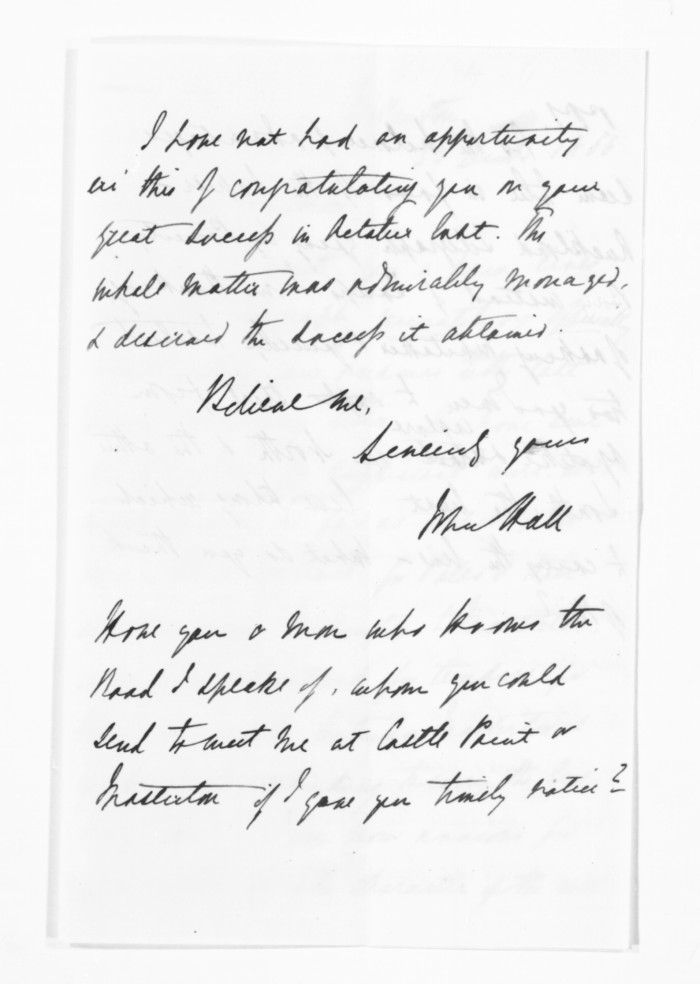 I have not had an opportunity
ere this of congratulating you on your
great success in October last. The
whole matter was admirably managed,
& deserved the success it obtained.
Believe me,
Sincerely yours
John Hall
Have you a man who knows the
Road I speake of, whom you could
send to meet me at Castle Point or
Masterton if I gave you timely notice?